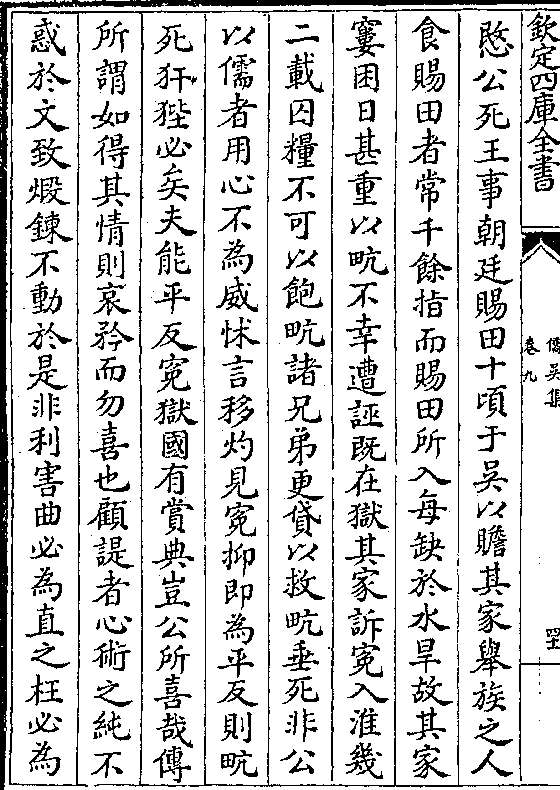 欽定四庫全書
僑吳集
卷九
愍公死王事朝廷賜田十頃于吳以贍其家舉族之人
食賜田者常千餘指而賜田所入每缺於水旱故其家
窶困日甚重以㽘不幸遭誣既在獄其家訴冤入淮幾
二載囚糧不可以飽㽘諸兄弟更貸以救㽘垂死非公
以儒者用心不為威怵言移灼見冤抑即為平反則㽘
死犴狴必矣夫能平反冤獄國有賞典豈公所喜哉傳
所謂如得其情則哀矜而勿喜也顧諟者心術之純不
惑於文致煅鍊不動於是非利害曲必為直之枉必為